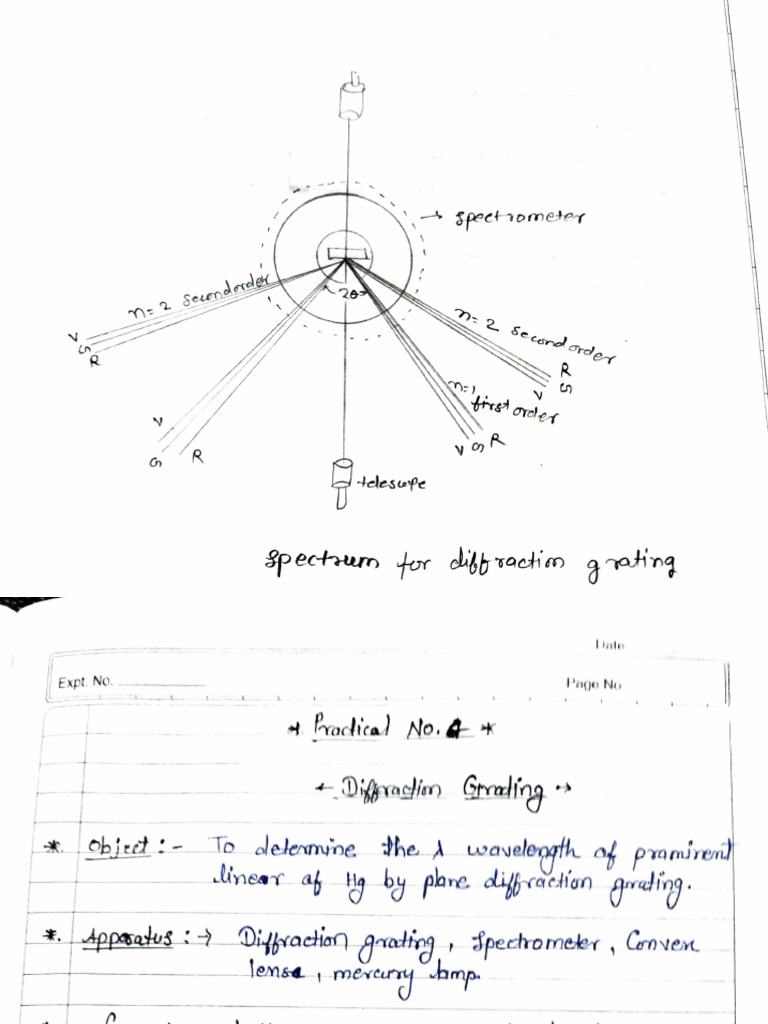 → spectrometer
2θ
n=2 second order
V
G
R
n=2 second order
R
G
V
n=1
first order
V G R
V
G
R
telescope
spectrum for diffraction grating
Date
Expt. No.
Page No
* Practical No. 4 *
← Diffraction Grading →
*. Object :- To determine the λ wavelength of praminent
linear of Hg by plane diffraction grating.
*. Apparatus : → Diffraction grating, Spectrometer, Convex
lense, mercury lamp.